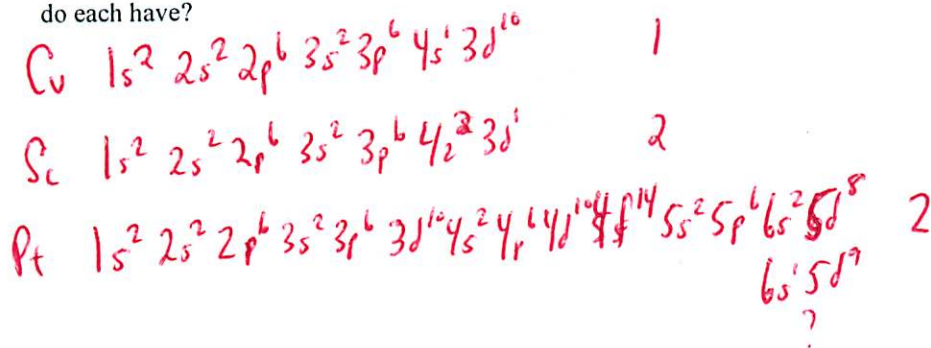 do each have?
Cu 1s² 2s² 2p⁶ 3s² 3p⁶ 4s¹ 3d¹⁰ 1
Sc 1s² 2s² 2p⁶ 3s² 3p⁶ 4s² 3d¹ 2
Pt 1s² 2s² 2p⁶ 3s² 3p⁶ 3d¹⁰ 4s² 4p⁶ 4d¹⁰ 4f¹⁴ 5s² 5p⁶ 6s² 5d⁸ 2
6s¹ 5d⁹
?